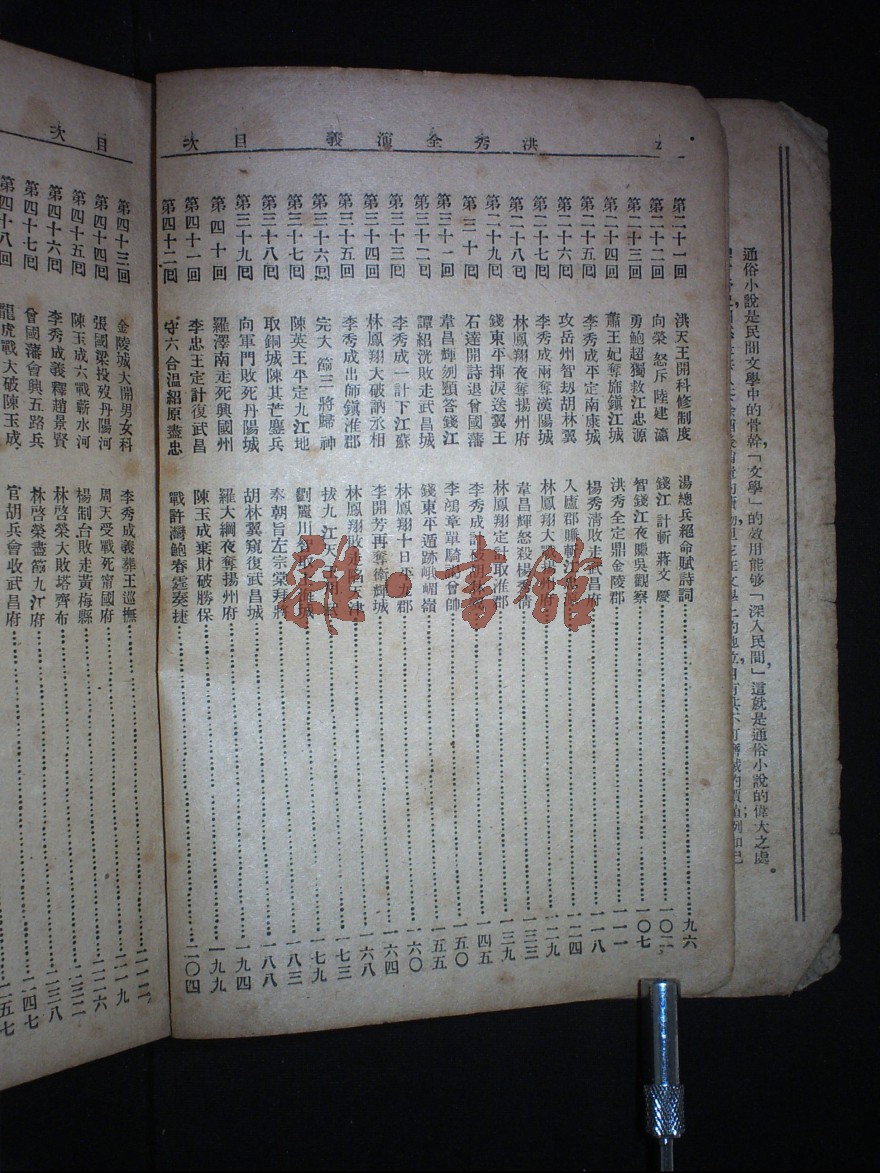 通俗小說是民間文學中的骨幹「文學」的效用能够「深入民間」這就是通俗小說的偉大之處。
洪秀全演義 目次 二
第二十一回 洪天王開科修制度 湯總兵絕命賦詩詞 九六
第二十二回 向榮怒斥陸建瀛 錢江計斬蔣文慶 一〇二
第二十三回 勇鮑超獨救江忠源 智錢江夜賺吳觀察 一〇七
第二十四回 蕭王妃奪旆鎭江城 洪秀全定鼎金陵郡 一一一
第二十五回 李秀成平定南康城 楊秀淸敗走武昌府 一一八
第二十六回 攻岳州智刼胡林翼 入廬郡賺斬江 一二四
第二十七回 李秀成兩奪漢陽城 林鳳翔大戰 一二九
第二十八回 林鳳翔夜奪揚州府 韋昌輝怒殺楊秀淸 一三三
第二十九回 錢東平揮淚送翼王 林鳳翔定計取淮郡 一三九
第三十回 石達開詩退曾國藩 李秀成計 一四五
第三十一回 韋昌輝刎頸答錢江 李鴻章單騎 會帥 一五〇
第三十二回 譚紹洸敗走武昌城 錢東平遁跡峨嵋嶺 一五五
第三十三回 李秀成一計下江蘇 林鳳翔十日平九郡 一六〇
第三十四回 林鳳翔大破訥丞相 李開芳再奪衛輝城 一六四
第三十五回 李秀成出師鎭淮郡 林鳳翔敗走 天津 一六八
第三十六回 完大節三將歸神 拔九江天 一七三
第三十七回 陳英王平定九江地 劉麗川 取 城 一七九
第三十八回 取銅城陳其芒鏖兵 奉朝旨左宗棠拜將 一八三
第三十九回 向軍門敗死丹陽城 胡林翼窺復武昌城 一八八
第四十回 羅澤南走死興國州 羅大綱夜奪揚州府 一九四
第四十一回 李忠王定計復武昌 陳玉成棄財破勝保 一九九
第四十二回 守六合溫紹原盡忠 戰許灣鮑春霆奏捷 二〇四
目次
第四十三回 金陵城大開男女科 李秀成義葬王巡撫 二一二
第四十四回 張國梁投歿丹陽河 周天受戰死甯國府 二一九
第四十五回 陳玉成六戰蘄水河 楊制台敗走黃梅縣 二二六
第四十六回 李秀成義釋趙景賢 林啓榮大敗塔齊布 二三二
第四十七回 曾國藩會興五路兵 林啓榮盡節九江府 二三八
第四十八回 龍虎戰大破陳玉成 官胡兵會收武昌府 二四七
二五七
雜·書館